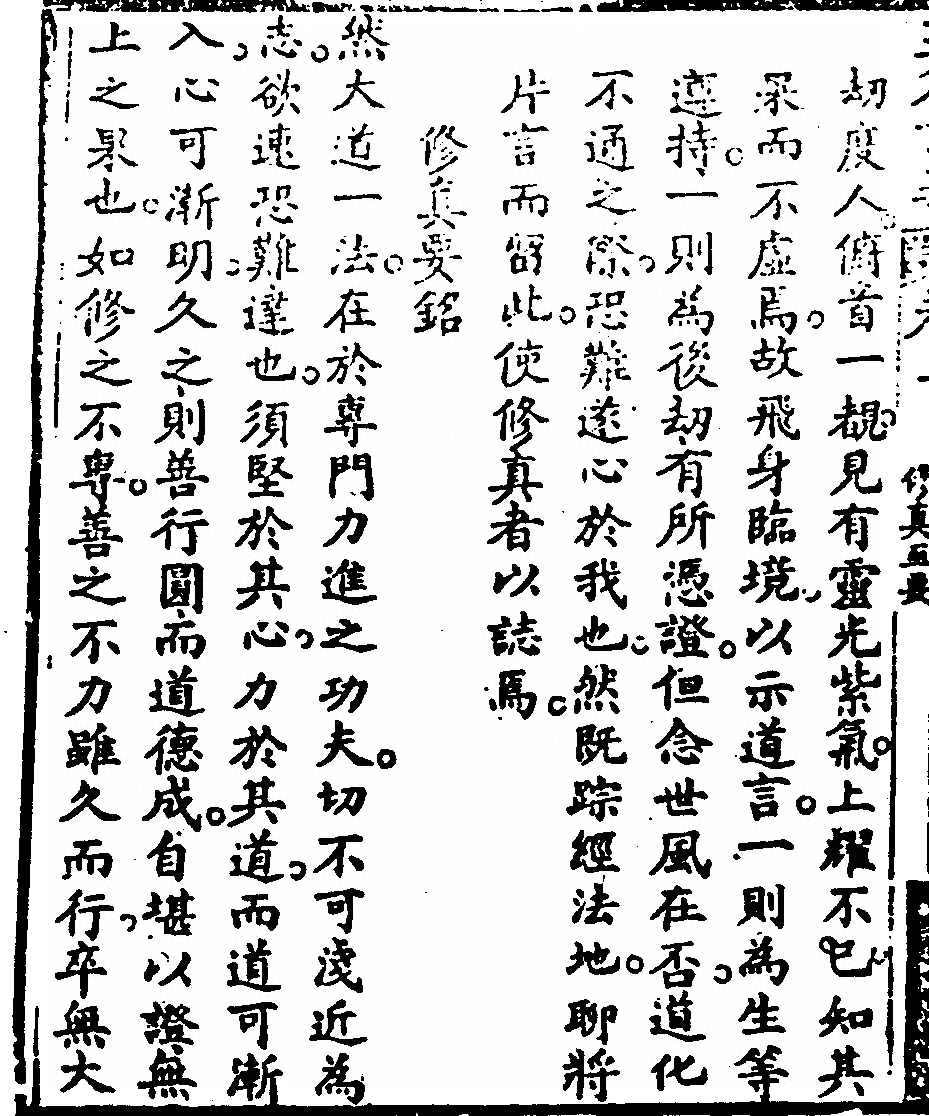 修真
劫度人俯首一覩見有靈光紫氣上耀不已知其
果而不虛焉故飛身臨境以示道言一則為生等
遵持一則為後劫有所憑證但念世風在否道化
不通之際恐難遂心於我也然既踪經法地聊將
片言而留此使修真者以誌焉
修真要銘
然大道一法在於專門力進之功夫切不可淺近為
志欲速恐難達也須堅於其心力於其道而道可漸
入心可漸明久之則善行圓而道德成自堪以證無
上之果也如修之不專善之不力雖久而行卒無大